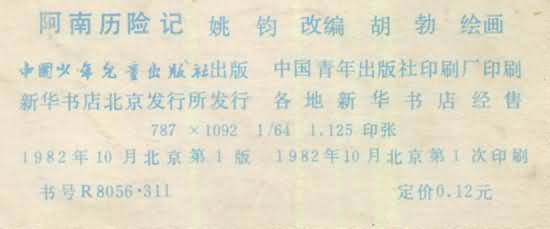 阿南历险记 姚钧 改编 胡勃 绘画
中国少年儿童出版社出版 中国青年出版社印刷厂印刷
新华书店北京发行所发行 各地新华书店经售
787×1092 1/64 1.125 印张
1982年10月北京第1版 1982年10月北京第1次印刷
书号R8056·311 定价0.12元